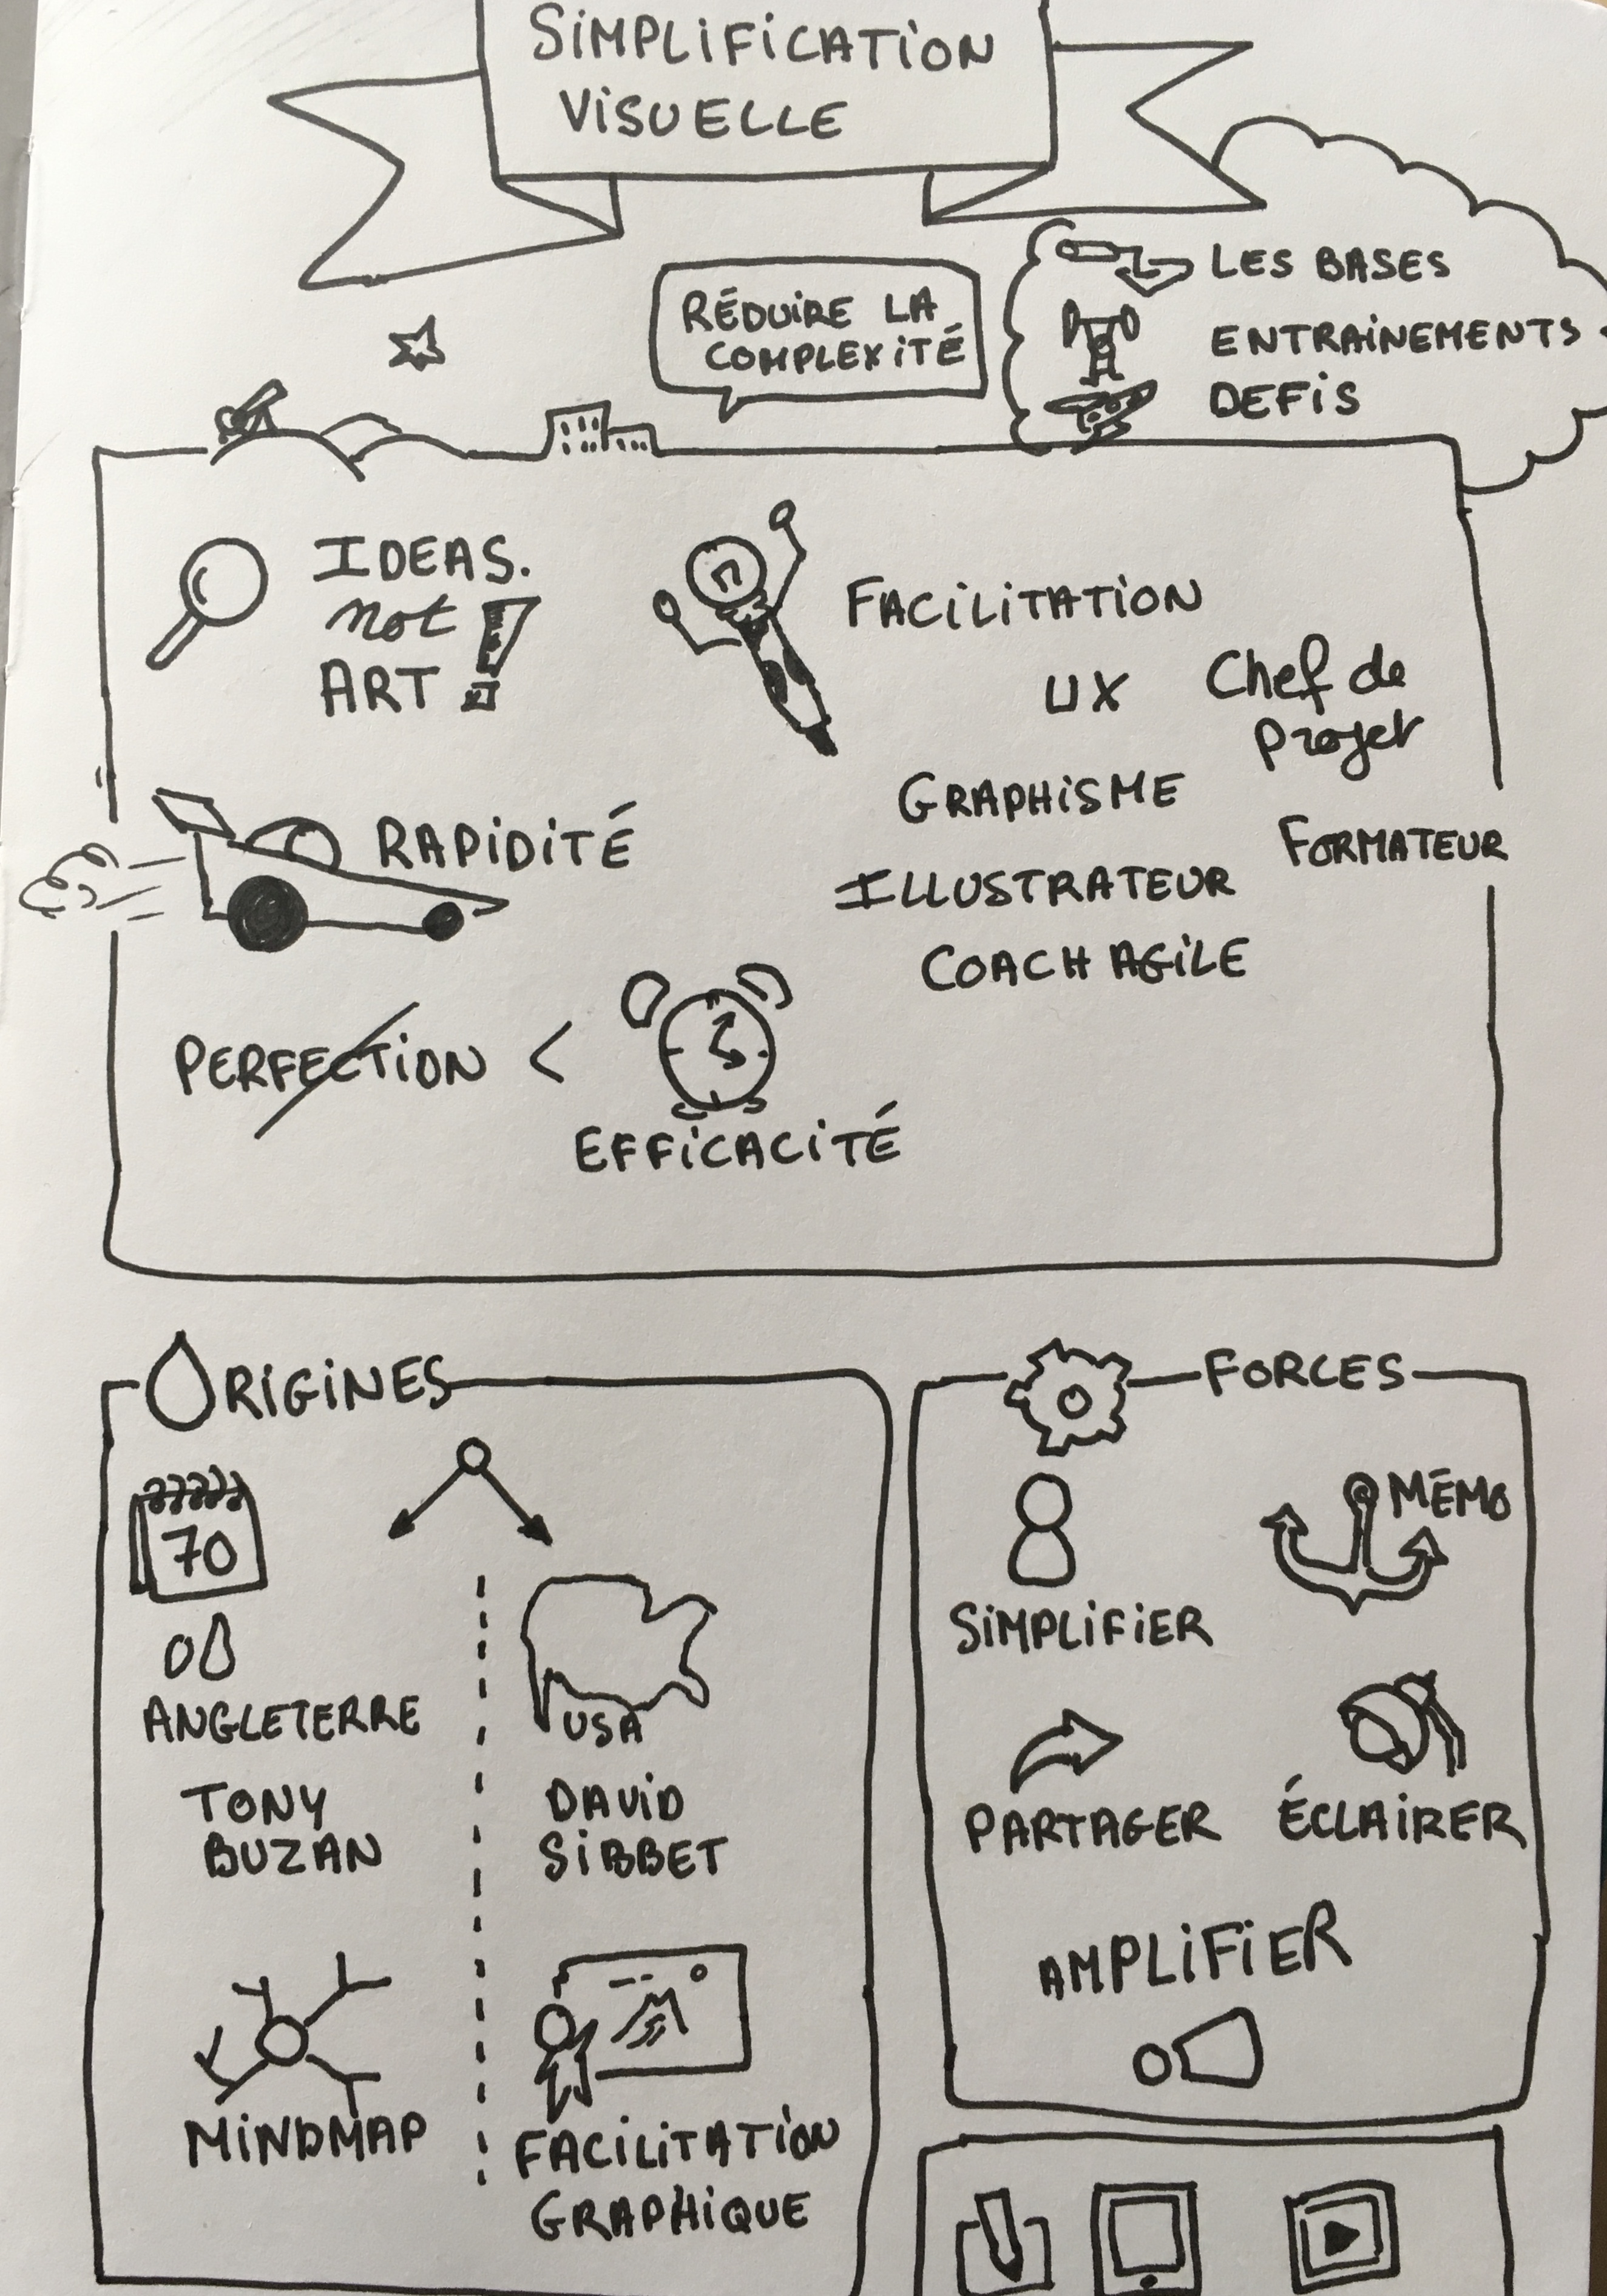 SIMPLIFICATION
VISUELLE
RÉDUIRE LA
COMPLEXITÉ
LES BASES
ENTRAINEMENTS
DEFIS
IDEAS.
not
ART !
FACILITATION
UX
Chef de
projet
GRAPHISME
FORMATEUR
ILLUSTRATEUR
COACH AGILE
RAPIDITÉ
PERFECTION <
EFFICACITÉ
ORIGINES
70
ANGLETERRE
TONY
BUZAN
MINDMAP
USA
DAVID
SIBBET
FACILITATION
GRAPHIQUE
FORCES
SIMPLIFIER
MÉMO
PARTAGER
ÉCLAIRER
AMPLIFIER